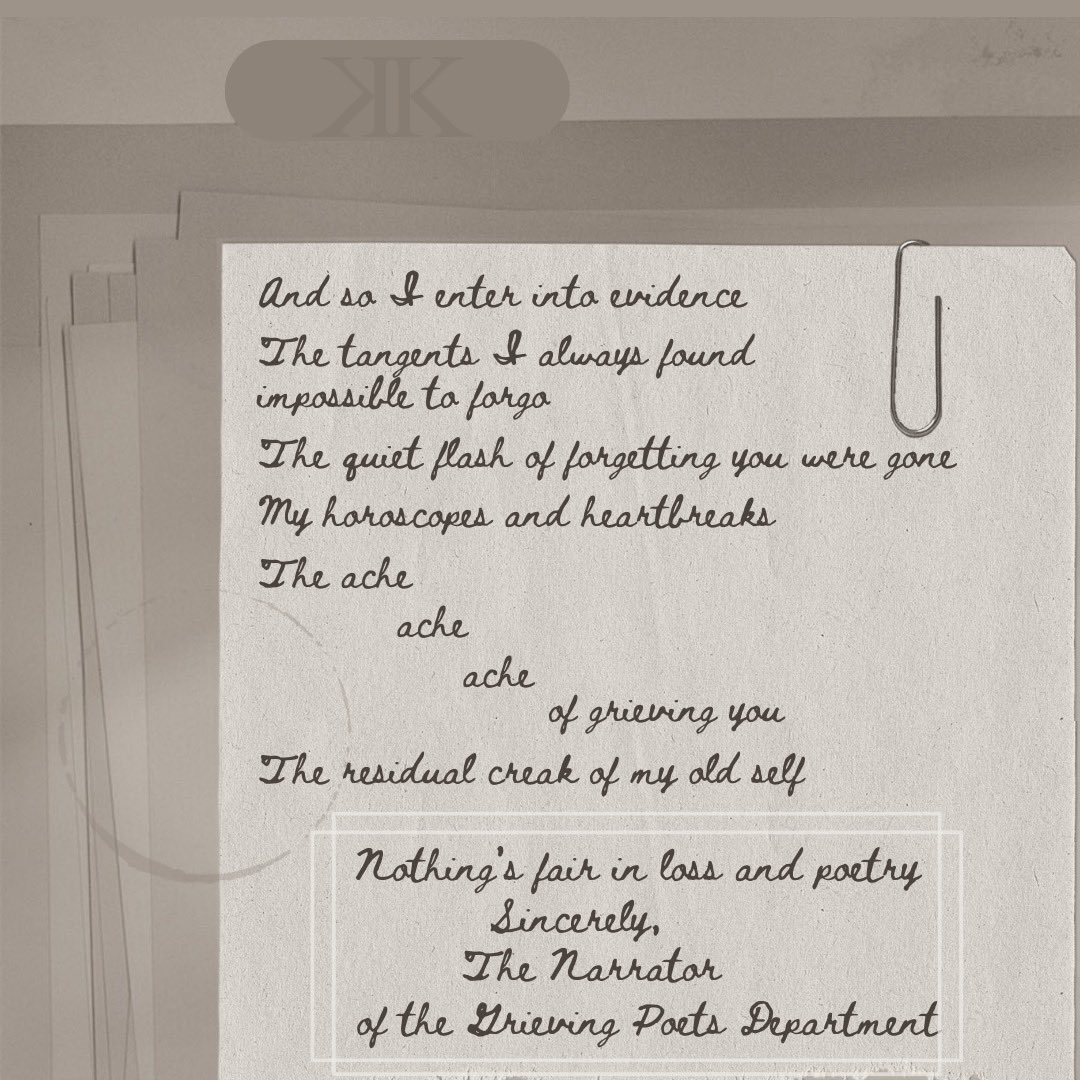 KK
And so I enter into evidence
The tangents I always found
impossible to forgo
The quiet flash of forgetting you were gone
My horoscopes and heartbreaks
The ache
ache
ache
of grieving you
The residual creak of my old self
Nothing's fair in loss and poetry
Sincerely,
The Narrator
of the Grieving Poets Department